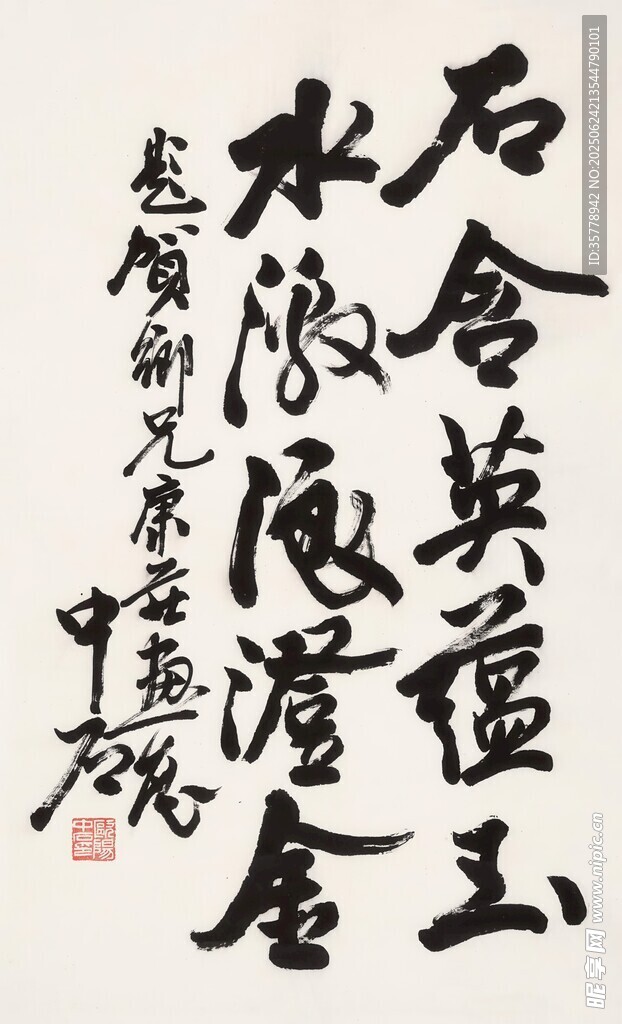 石含英蘊玉
水激浪澄金
題賀鄉兄康莊畫展
中石
歐陽中石印
ID:35778942 NO:20250624213544790101
昵享网 www.nipic.cn